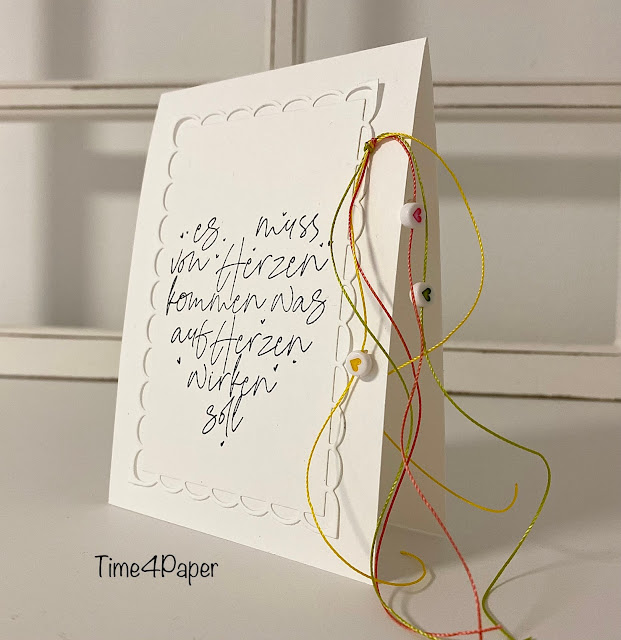 es muss
von Herzen
kommen was
auf Herzen
wirken
soll
Time4Paper